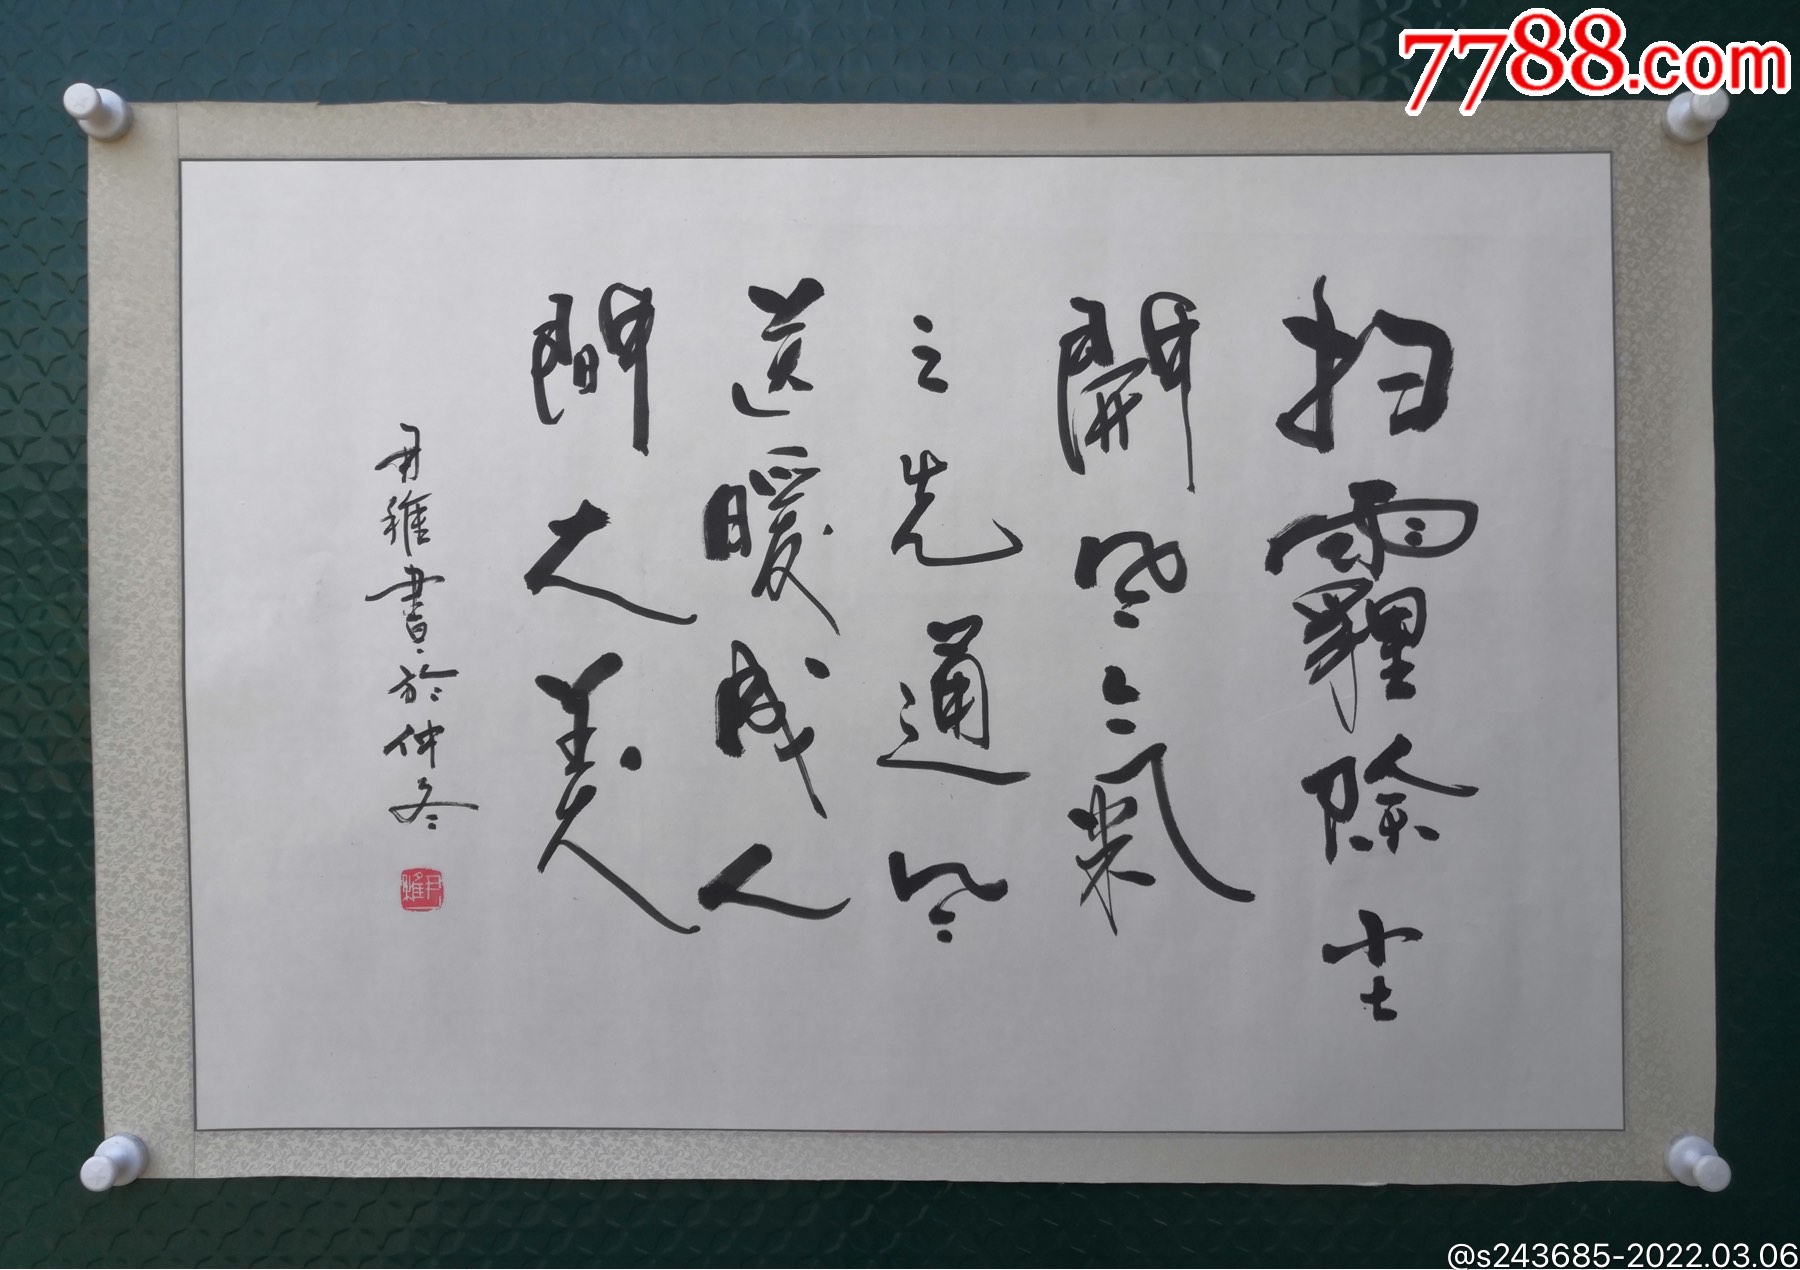 7788.com
扫霾除尘
開风氣
之先通风
送暖成人
間大美
尹雅書於仲冬
尹雅
@s243685-2022.03.06